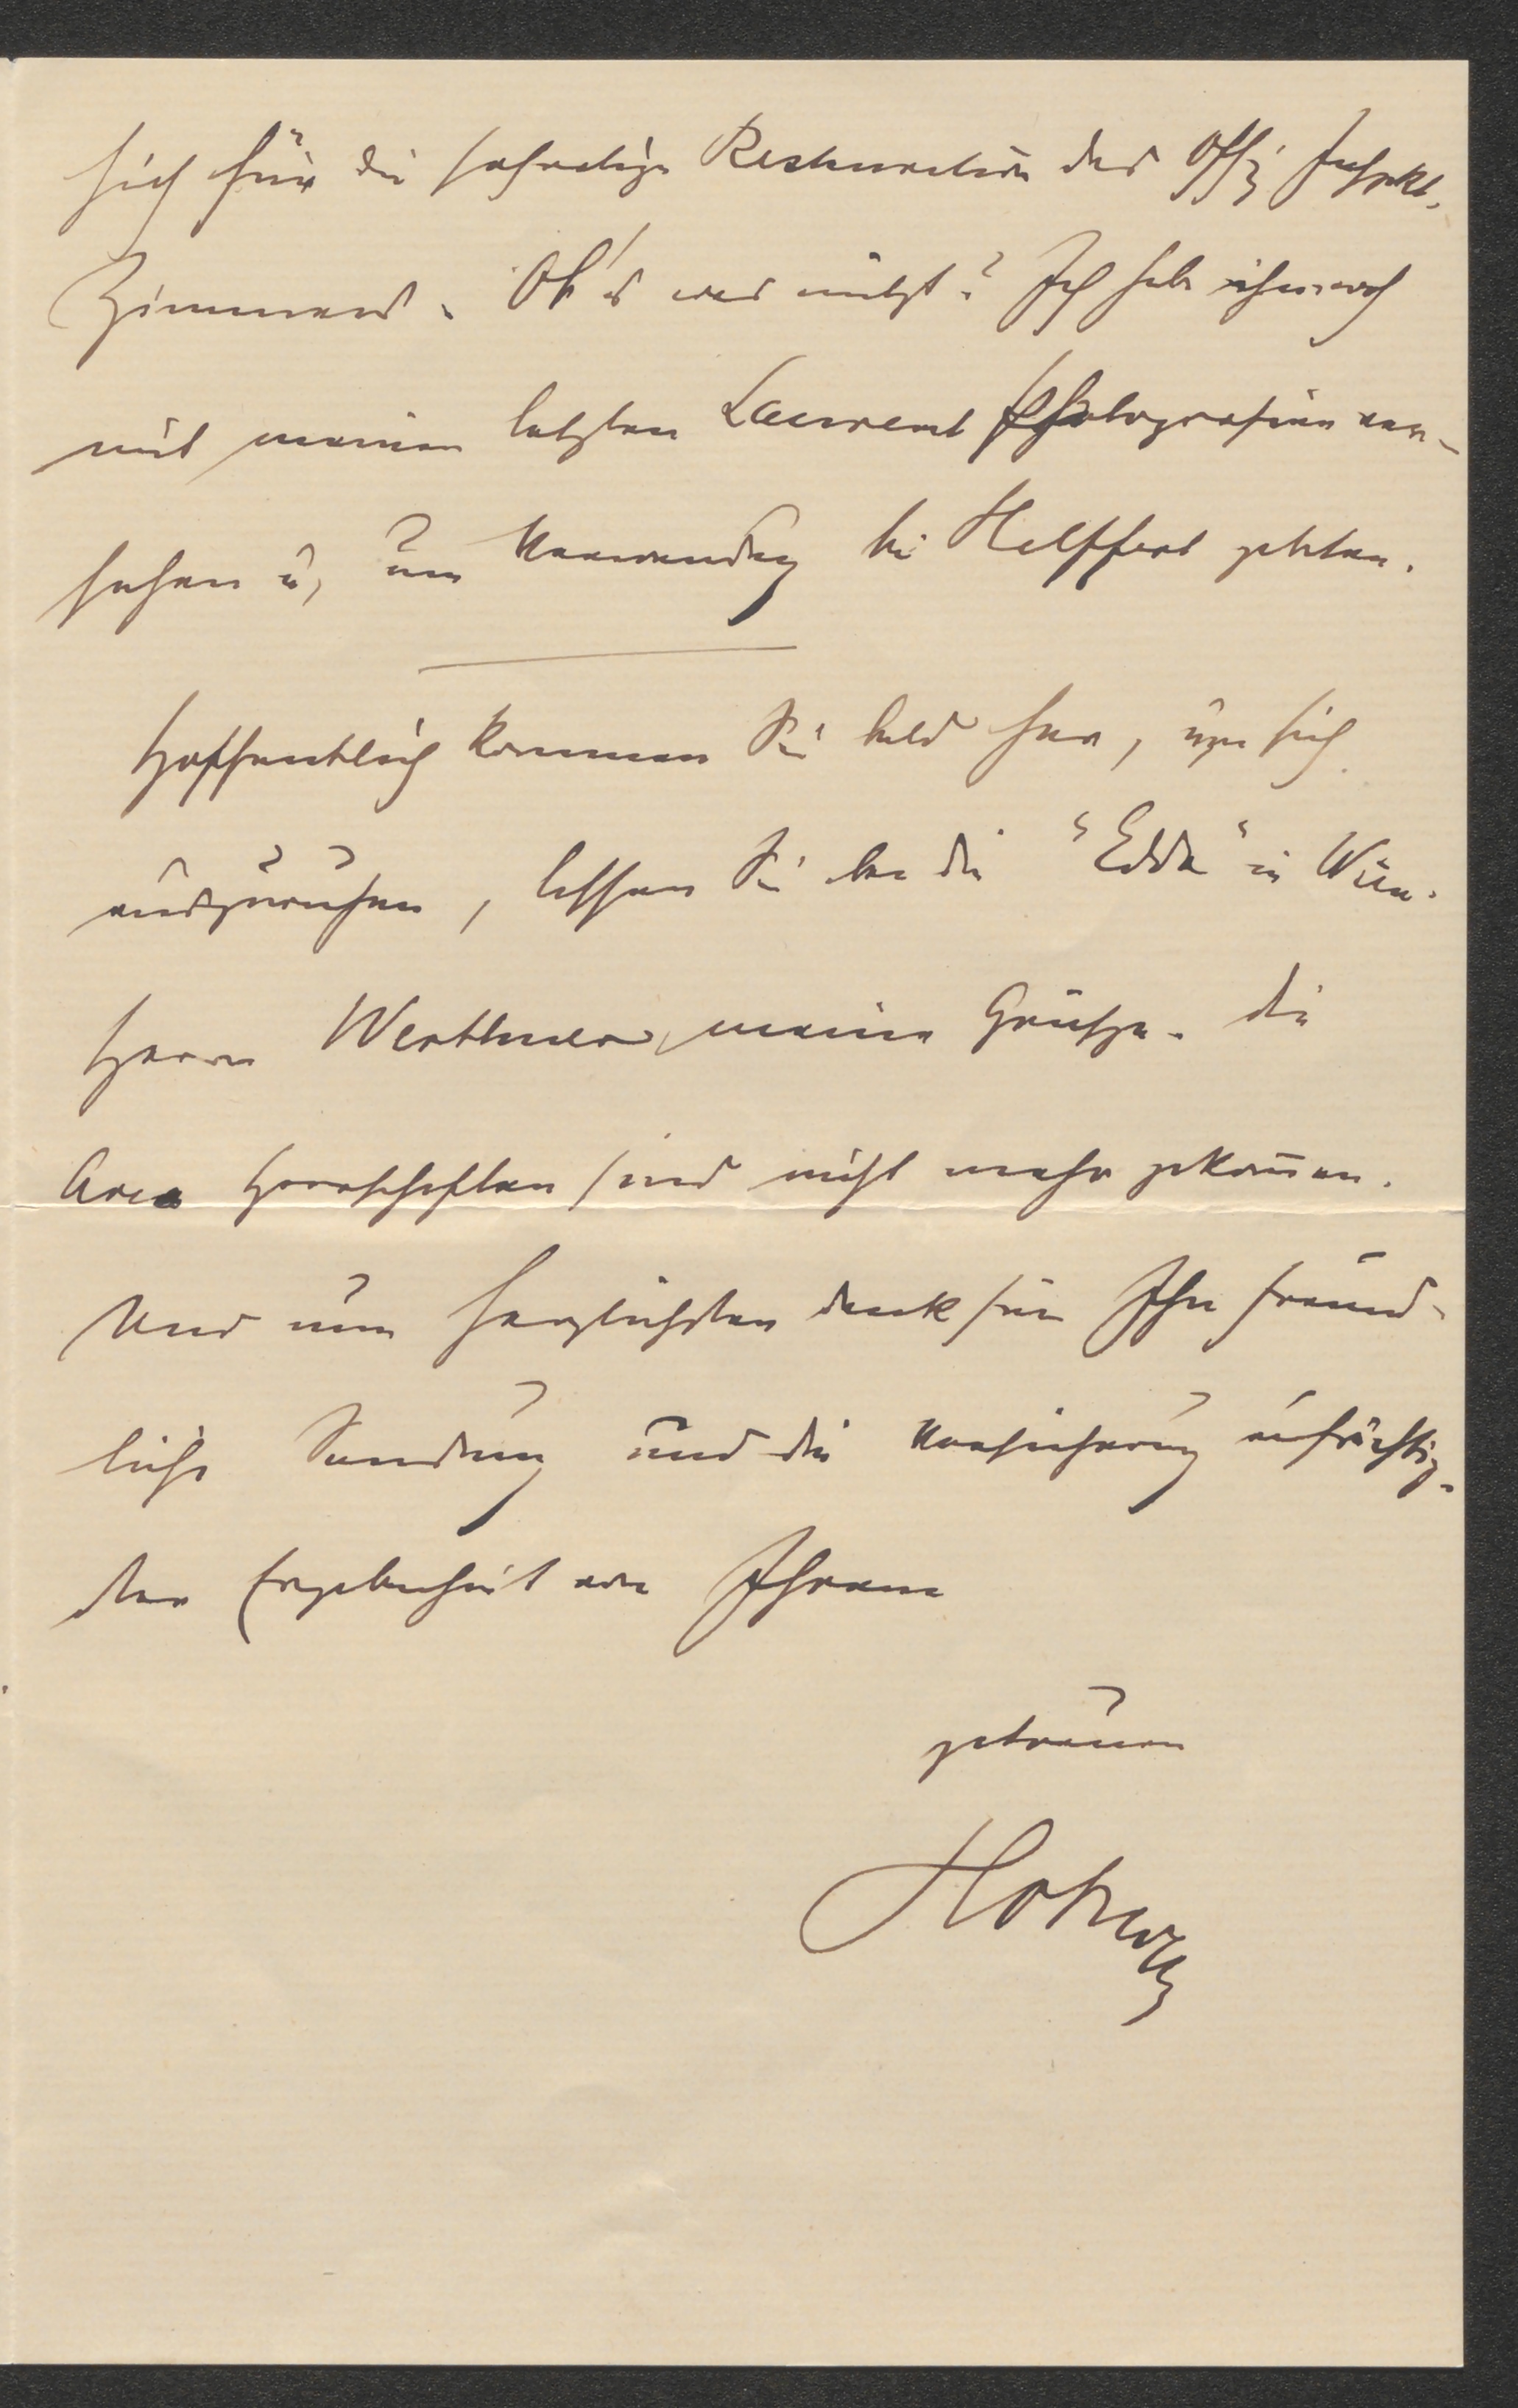 sich für die sofortige Restauration des Offiz Inspekt.
Zimmers. Ob's was nützt? Ich habe ihm noch
mit meinen letzten Laurent Photografien ver-
sehen u, um Verwendg bei Helffert gebeten.
Hoffentlich kommen Sie bald her, um sich
auszuruhen, lassen Sie aber die "Edda" in Wien.
Herrn Werthner meine Grüße. Die
Herrschaften sind nicht mehr gekom̄en.
Und nun herzlichsten Dank für Ihre freund-
liche Sendung und die Versicherung aufrichtig-
ster Ergebenheit von Ihrem
getreuen